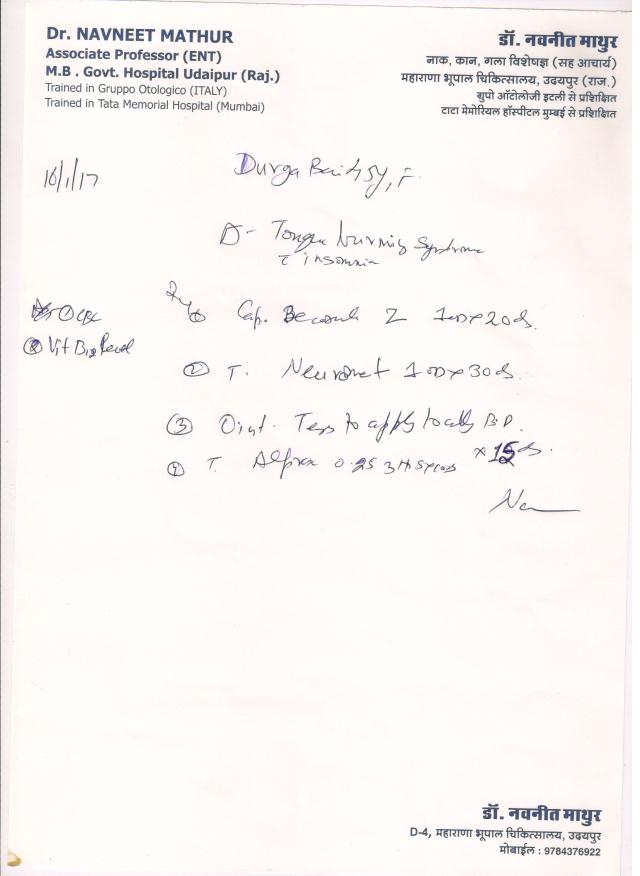 Dr. NAVNEET MATHUR
Associate Professor (ENT)
M.B . Govt. Hospital Udaipur (Raj.)
Trained in Gruppo Otologico (ITALY)
Trained in Tata Memorial Hospital (Mumbai)
डॉ. नवनीत माथुर
नाक, कान, गला विशेषज्ञ (सह आचार्य)
महाराणा भूपाल चिकित्सालय, उदयपुर (राज.)
ग्रुपो ऑटोलोजी इटली से प्रशिक्षित
टाटा मेमोरियल हॉस्पीटल मुम्बई से प्रशिक्षित
16/1/17
Durga Bai 45y, F.
D- Tongue burning Syndrome
c insomnia
① CBC
② Vit B12 level
① Cap. Z 1 OD x 20 ds.
② T. 1 OD x 30 ds.
③ Oint. Tess to apply locally B.D.
④ T. Alprax 0.25 x 15 ds.
डॉ. नवनीत माथुर
D-4, महाराणा भूपाल चिकित्सालय, उदयपुर
मोबाईल : 9784376922